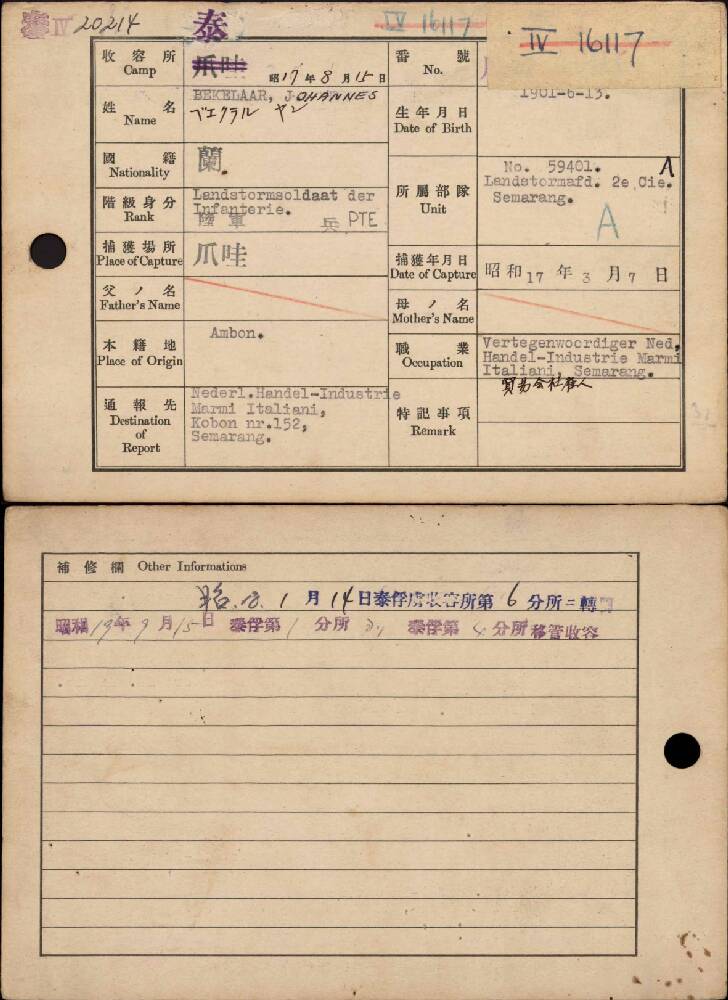 泰 IV 20214
泰
IV 16117
IV 16117
收容所 Camp 爪哇 昭17年8月15日
番號 No.
姓名 Name BEKELAAR, JOHANNES
ベエクラル ヤン
生年月日 Date of Birth 1901-6-13.
國籍 Nationality 蘭.
階級身分 Rank Landstormsoldaat der
Infanterie.
陸軍 兵 PTE
所屬部隊 Unit No. 59401. A
Landstormafd. 2e Cie.
Semarang.
A
捕獲場所 Place of Capture 爪哇
捕獲年月日 Date of Capture 昭和17年3月7日
父ノ名 Father's Name
母ノ名 Mother's Name
本籍地 Place of Origin Ambon.
職業 Occupation Vertegenwoordiger Ned.
Handel-Industrie Marmi
Italiani, Semarang.
貿易会社雇人
通報先 Destination of Report Nederl.Handel-Industrie
Marmi Italiani,
Kobon nr.152,
Semarang.
特記事項 Remark
補修欄 Other Informations
昭.18.1月14日泰俘虜收容所第6分所ニ轉
昭和19年9月15日 泰俘第1分所ヨリ 泰俘第4分所移管收容